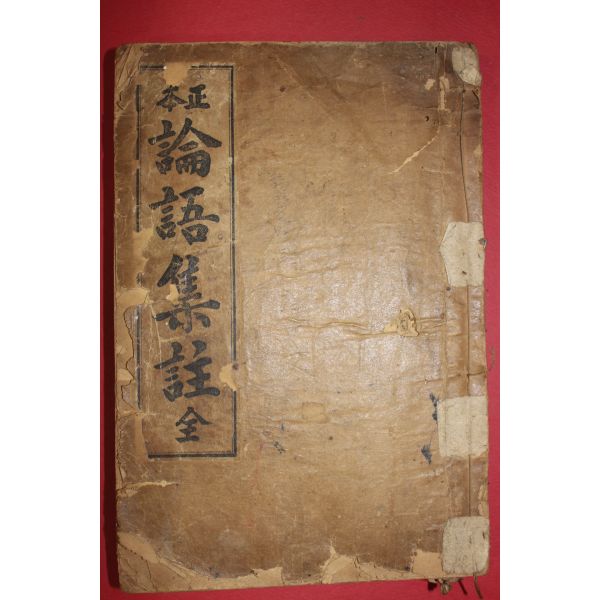 正本
論語集註全